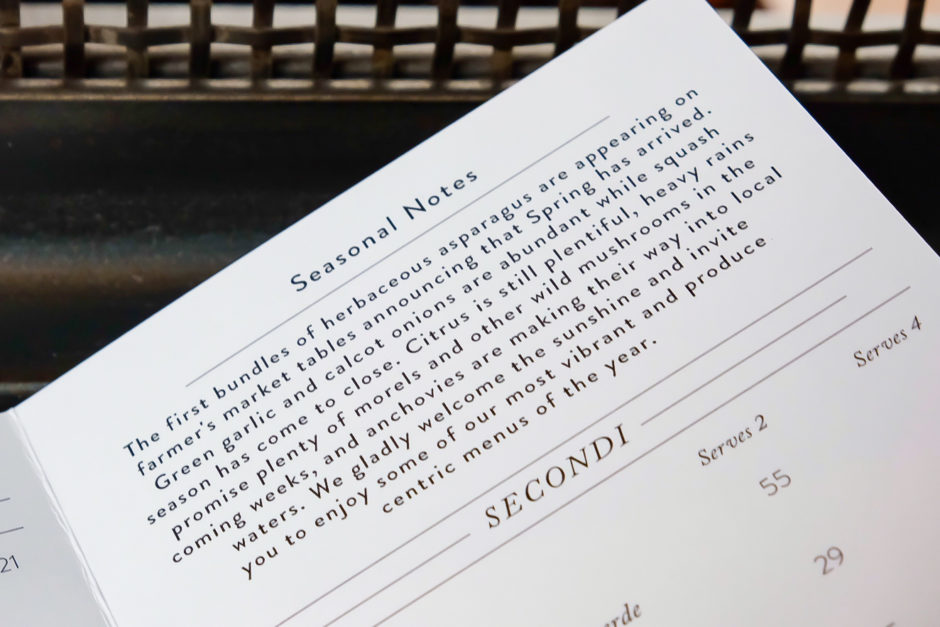 Seasonal Notes
The first bundles of herbaceous asparagus are appearing on
farmer's market tables announcing that Spring has arrived.
Green garlic and calcot onions are abundant while squash
season has come to close. Citrus is still plentiful, heavy rains
promise plenty of morels and other wild mushrooms in the
coming weeks, and anchovies are making their way into local
waters. We gladly welcome the sunshine and invite
you to enjoy some of our most vibrant and produce
centric menus of the year.
SECONDI
Serves 2 Serves 4
55
29
21